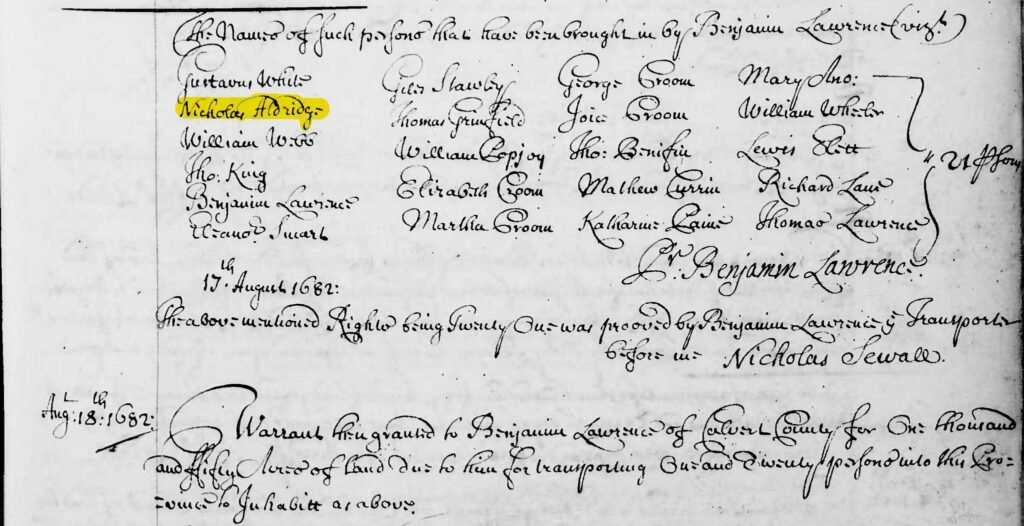 (The Names of such persons that have been brought in by Benjamin Lawrence (vizt.)
Gustavus White Giles Stawby George Groom Mary Ano:
Nicholas Aldridge Thomas Grinfield Joice Groom William Wheeler
William Webb William Popjoy Tho: Benifin Lewis Elett
Tho: King Elizabeth Groom Mathew Currin Richard Lane
Benjamin Lawrence Martha Groom Katharine Paine Thomas Lawrence
Eleanor Smart
21 p̱sons
Pr. Benjamin Lawrence.
17th August 1682:
The above mentioned Rights being Twenty One was prooved by Benjamin Lawrence ye Transporter
before me Nicholas Sewall.
Augt: 18th: 1682:
Warrant then granted to Benjamin Lawrence of Calvert County for One thousand
and ffifty Acres of land due to him for transporting One and Twenty persons into this Pro-
=vince to Inhabitt as above.